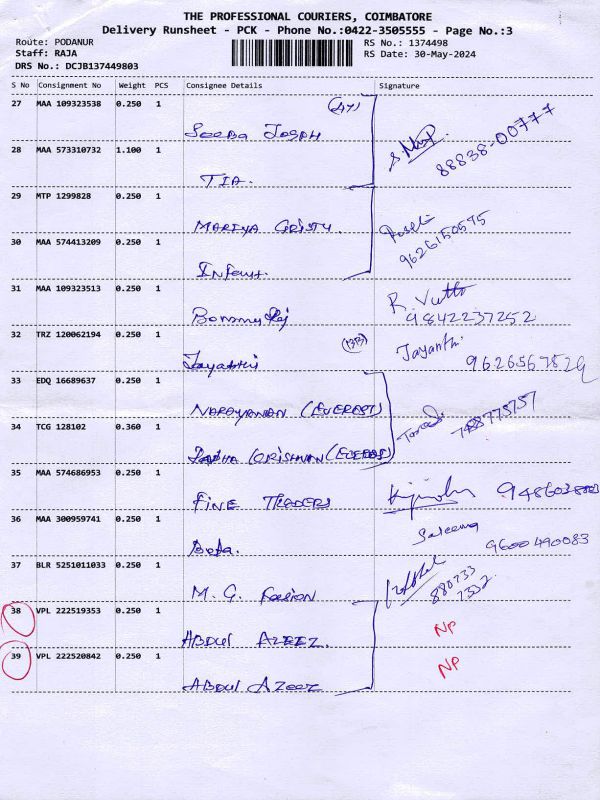 THE PROFESSIONAL COURIERS, COIMBATORE
Delivery Runsheet - PCK - Phone No.:0422-3505555 - Page No.:3
Route: PODANUR RS No.: 1374498
Staff: RAJA RS Date: 30-May-2024
DRS No.: DCJB137449803
S No Consignment No Weight PCS Consignee Details Signature
27 MAA 109323538 0.250 1
Seeba Joseph
28 MAA 573310732 1.100 1 88838-00777
TIA.
29 MTP 1299828 0.250 1
MARIYA CRISTY.
30 MAA 574413209 0.250 1 9626150575
Infant.
31 MAA 109323513 0.250 1 R.
9842237252
32 TRZ 120062194 0.250 1 Jayanthi
33 EDQ 16689637 0.250 1
NARAYANAN (EVEREST)
34 TCG 128102 0.360 1
KRISHNAN
35 MAA 574686953 0.250 1
FINE TRADERS
36 MAA 300959741 0.250 1 Saleema
9600490083
37 BLR 5251011033 0.250 1 880733
M. G. 7332
38 VPL 222519353 0.250 1
ABDUL AZEEZ. NP
39 VPL 222520842 0.250 1 NP
ABDUL AZEEZ